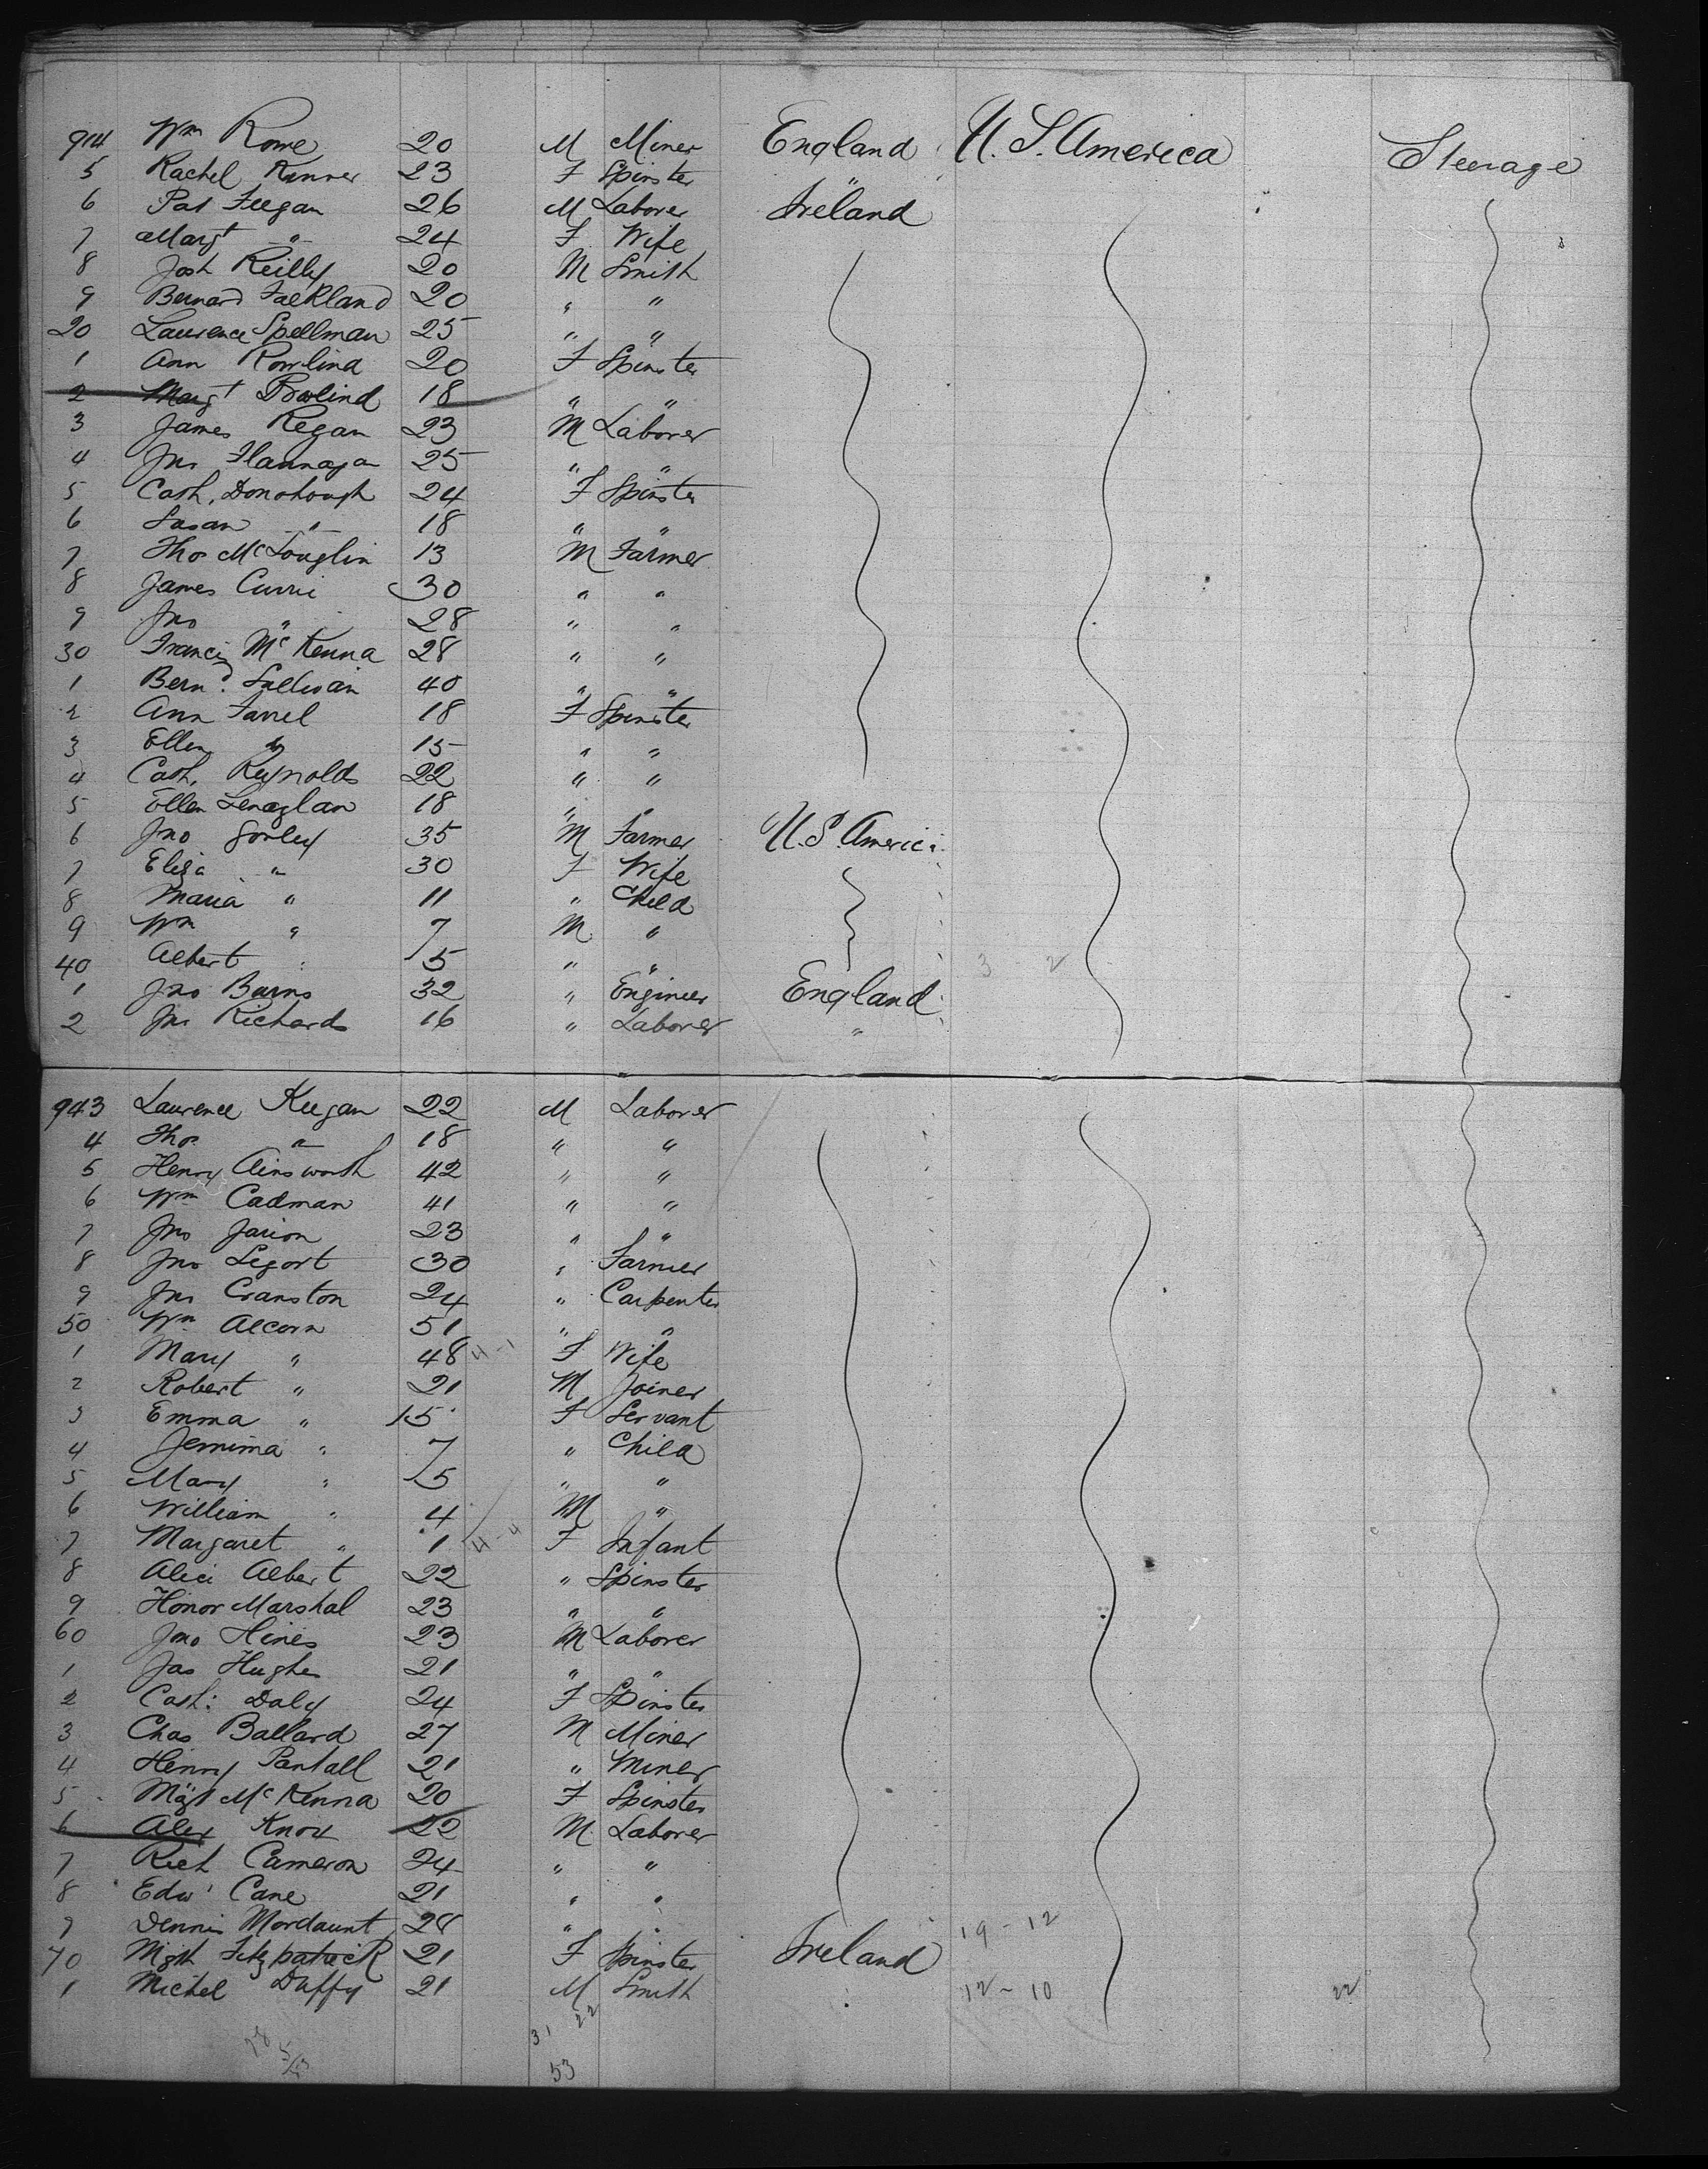 914 Wm Rowe 20 M Miner England U. S. America Steerage
5 Rachel Kinner 23 F Spinster "
6 Pat Feegan 26 M Laborer Ireland
7 Margt " 24 F Wife
8 Josh Reilly 20 M Smith
9 Bernard Falkland 20 " "
20 Laurence Spellman 25 " "
1 Ann Rowlind 20 F Spinster
2 Margt Rowlind 18 " "
3 James Regan 23 M Laborer
4 Jno Flannagan 25 " "
5 Cath. Donohough 24 F Spinster
6 Susan " 18 " "
7 Thos McLouglin 13 M Farmer
8 James Currie 30 " "
9 Jno " 28 " "
30 Francis McKenna 28 " "
1 Bernd. Sullivan 40 " "
2 Ann Farrel 18 F Spinster
3 Ellen " 15 " "
4 Cath. Reynolds 22 " "
5 Ellen Lenaglan 18 " "
6 Jno Gorley 35 M Farmer U.S. America
7 Eliza " 30 F Wife
8 Maria " 11 " Child
9 Wm " 7 M "
40 Albert " 5 " " 3 - 2
1 Jno Barns 32 " Engineer England
2 Jno Richards 16 " Laborer "
943 Laurence Keegan 22 M Laborer
4 Thos " 18 " "
5 Henry Ainsworth 42 " "
6 Wm Cadman 41 " "
7 Jno Jarion 23 " "
8 Jno Legort 30 " Farmer
9 Jno Cranston 24 " Carpenter
50 Wm Alcorn 51 " "
1 Mary " 48 4-1 F Wife
2 Robert " 21 M Joiner
3 Emma " 15 F Servant
4 Jemima " 7 " Child
5 Mary " 5 " "
6 William " 4 M "
7 Margaret " 1 4-4 F Infant
8 Alice Albert 22 " Spinster
9 Honor Marshal 23 " "
60 Jno Hines 23 M Laborer
1 Jas Hughes 21 " "
2 Cath: Daly 24 F Spinster
3 Chas Ballard 27 M Miner
4 Henry Pantall 21 " Miner
5 Mgt McKenna 20 F Spinster
6 Alex Knox 22 M Laborer
7 Rich Cameron 24 " "
8 Edwd Cane 21 " "
9 Dennis Mordaunt 28 " " 19 - 12
70 Mgth Fitzpatrick 21 F Spinster Ireland
1 Michel Duffy 21 M Smith " 12 - 10 22
31 22
53